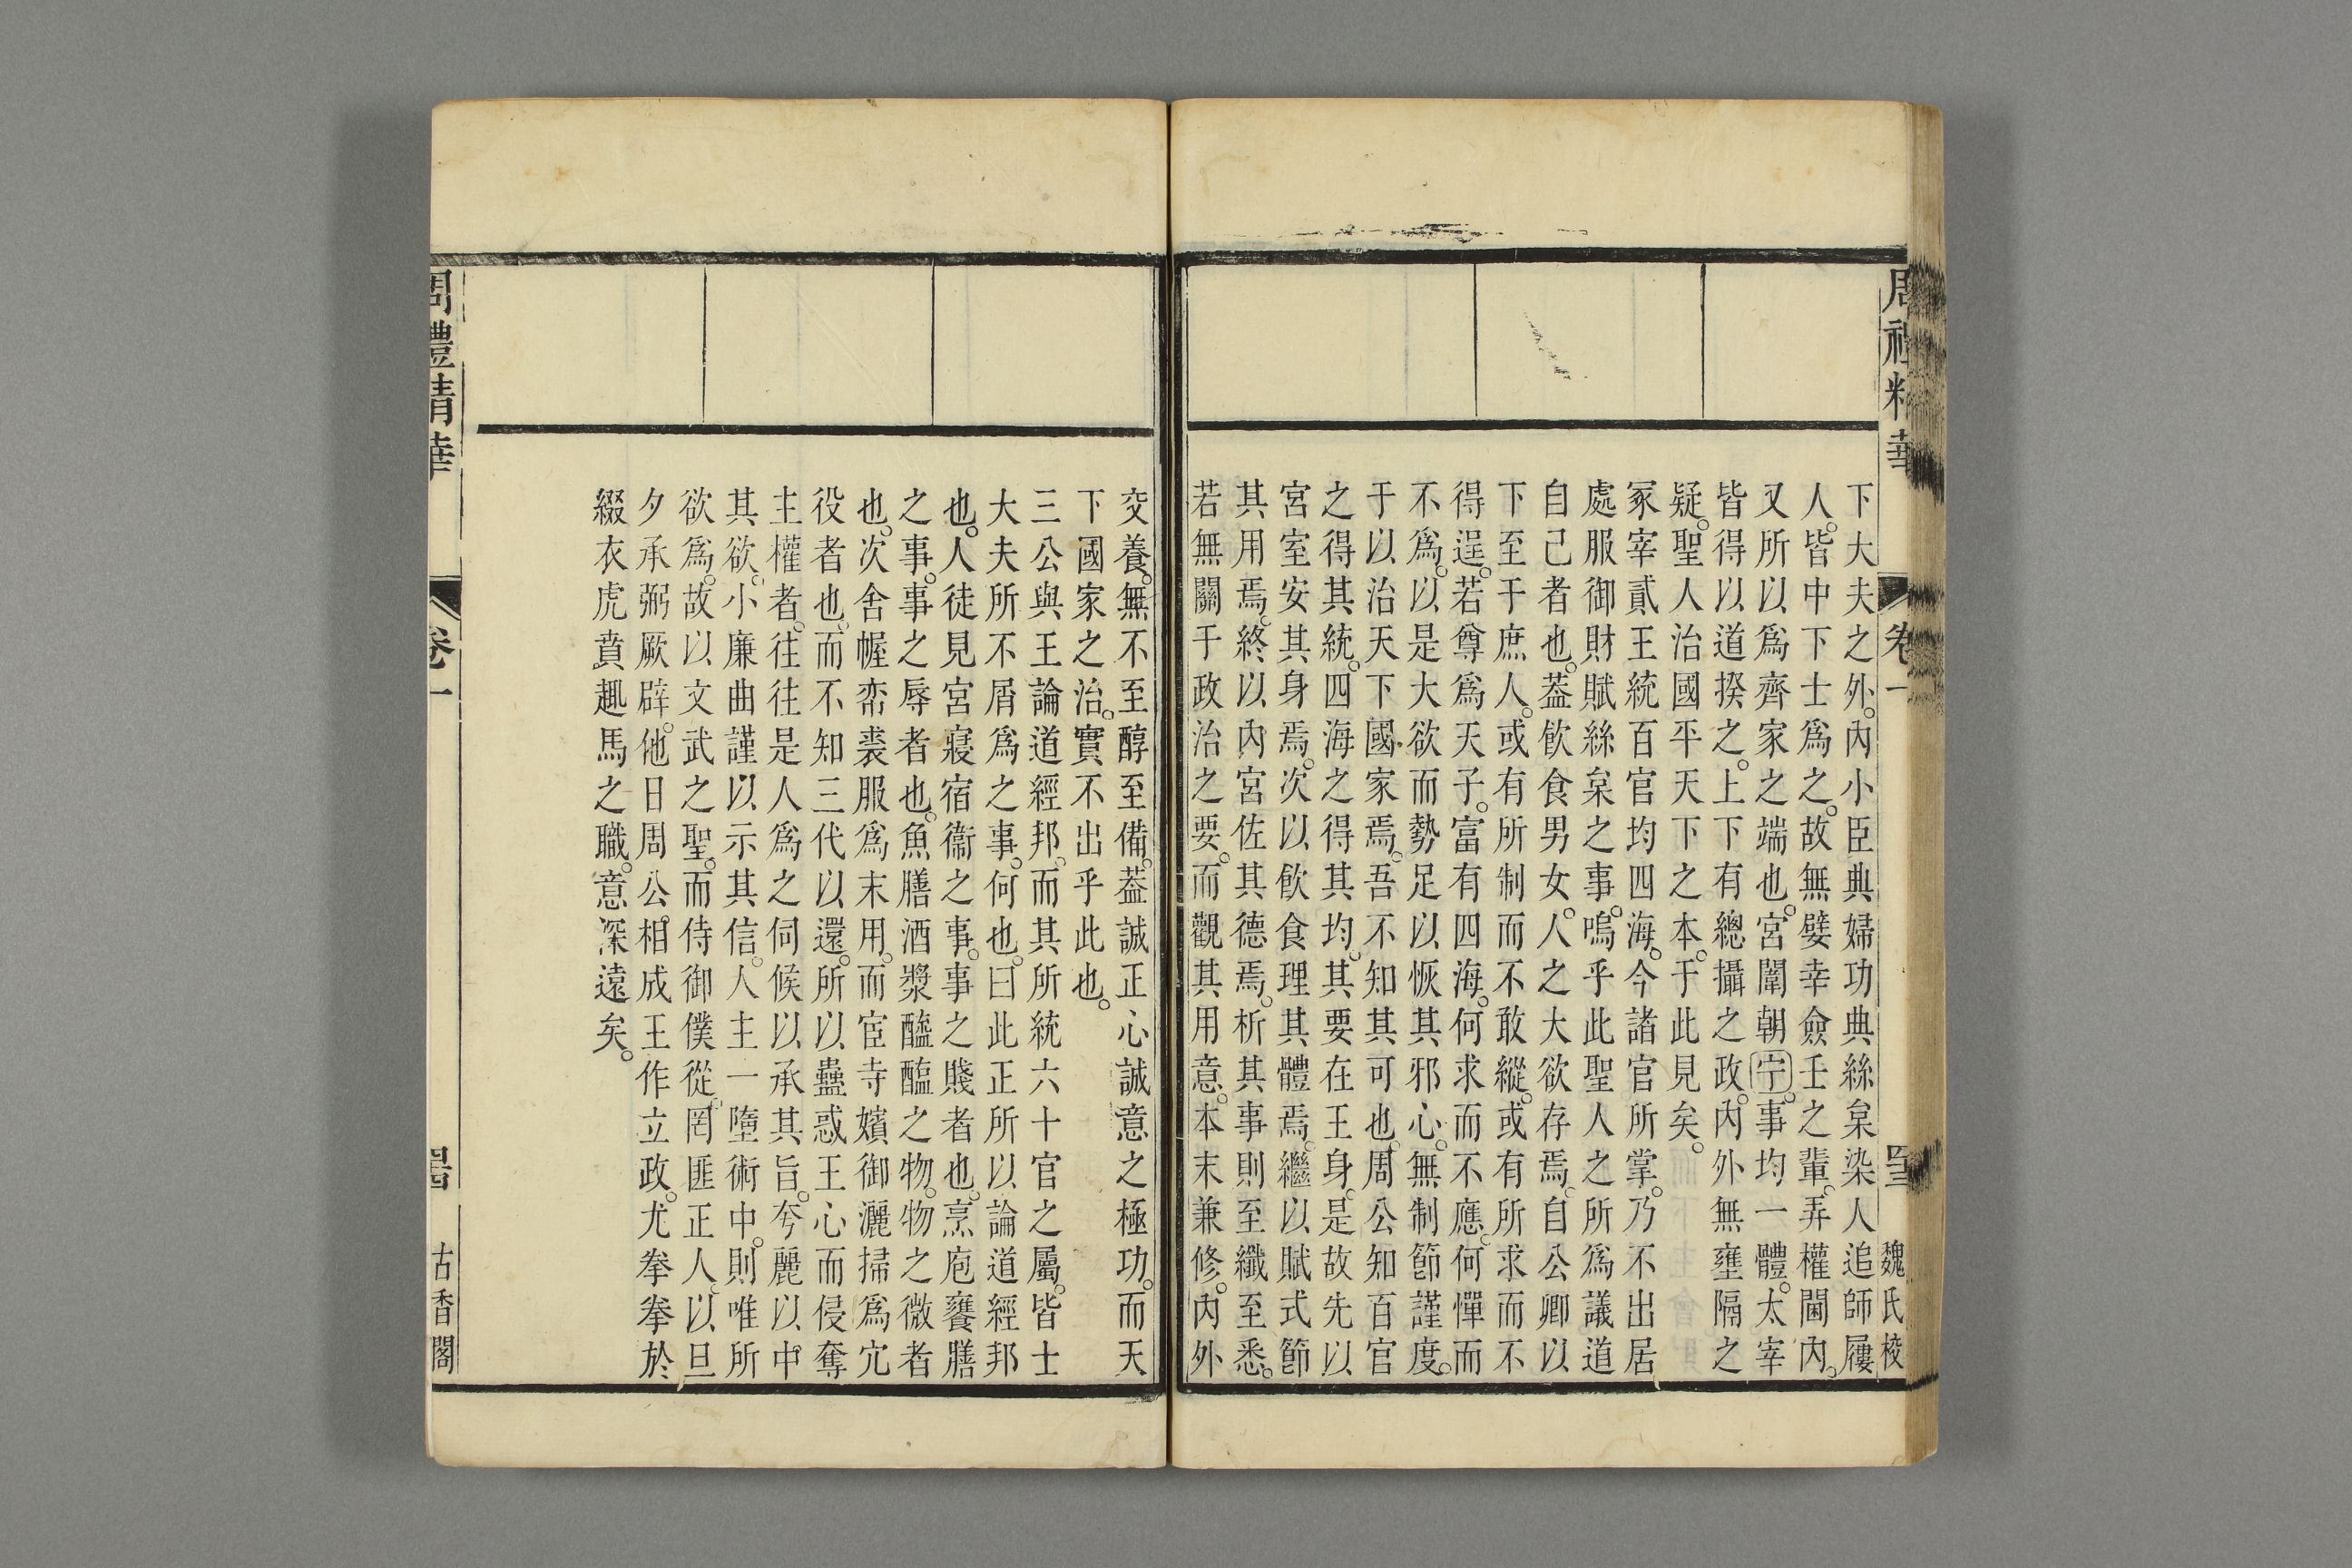 周禮精華
卷一
四三
魏氏校
下大夫之外。內小臣典婦功典絲枲染人追師屨
人。皆中下士爲之。故無嬖幸僉壬之輩。弄權閫內。
又所以爲齊家之端也。宮闈朝宁。事均一體。太宰
皆得以道揆之。上下有總攝之政。內外無壅隔之
疑。聖人治國平天下之本。于此見矣。
冢宰貳王統百官均四海。今諸官所掌。乃不出居
處服御財賦絲枲之事。嗚乎此聖人之所爲議道
自己者也。葢飮食男女。人之大欲存焉。自公卿以
下至于庶人。或有所制而不敢縱。或有所求而不
得逞。若尊爲天子。富有四海。何求而不應。何憚而
不爲。以是大欲而勢足以恢其邪心。無制節謹度。
于以治天下國家焉。吾不知其可也。周公知百官
之得其統。四海之得其均。其要在王身。是故先以
宮室安其身焉。次以飮食理其體焉。繼以賦式節
其用焉。終以內宮佐其德焉。析其事則至纖至悉。
若無關于政治之要。而觀其用意。本末兼修。內外
交養。無不至醇至備。葢誠正心誠意之極功。而天
下國家之治。實不出乎此也。
三公與王論道經邦。而其所統六十官之屬。皆士
大夫所不屑爲之事。何也。曰此正所以論道經邦
也。人徒見宮寢宿衞之事。事之賤者也。烹庖饔膳
之事。事之辱者也。魚膳酒漿醯醢之物。物之微者
也。次舍幄帟裘服爲末用。而宦寺嬪御灑掃爲宂
役者也。而不知三代以還。所以蠱惑王心而侵奪
主權者。往往是人爲之伺候以承其旨。夸麗以中
其欲。小廉曲謹以示其信。人主一墮術中。則唯所
欲爲。故以文武之聖。而侍御僕從。罔匪正人。以旦
夕承弼厥辟。他日周公相成王作立政。尤拳拳於
綴衣虎賁趣馬之職。意深遠矣。
周禮精華
卷一
古香閣